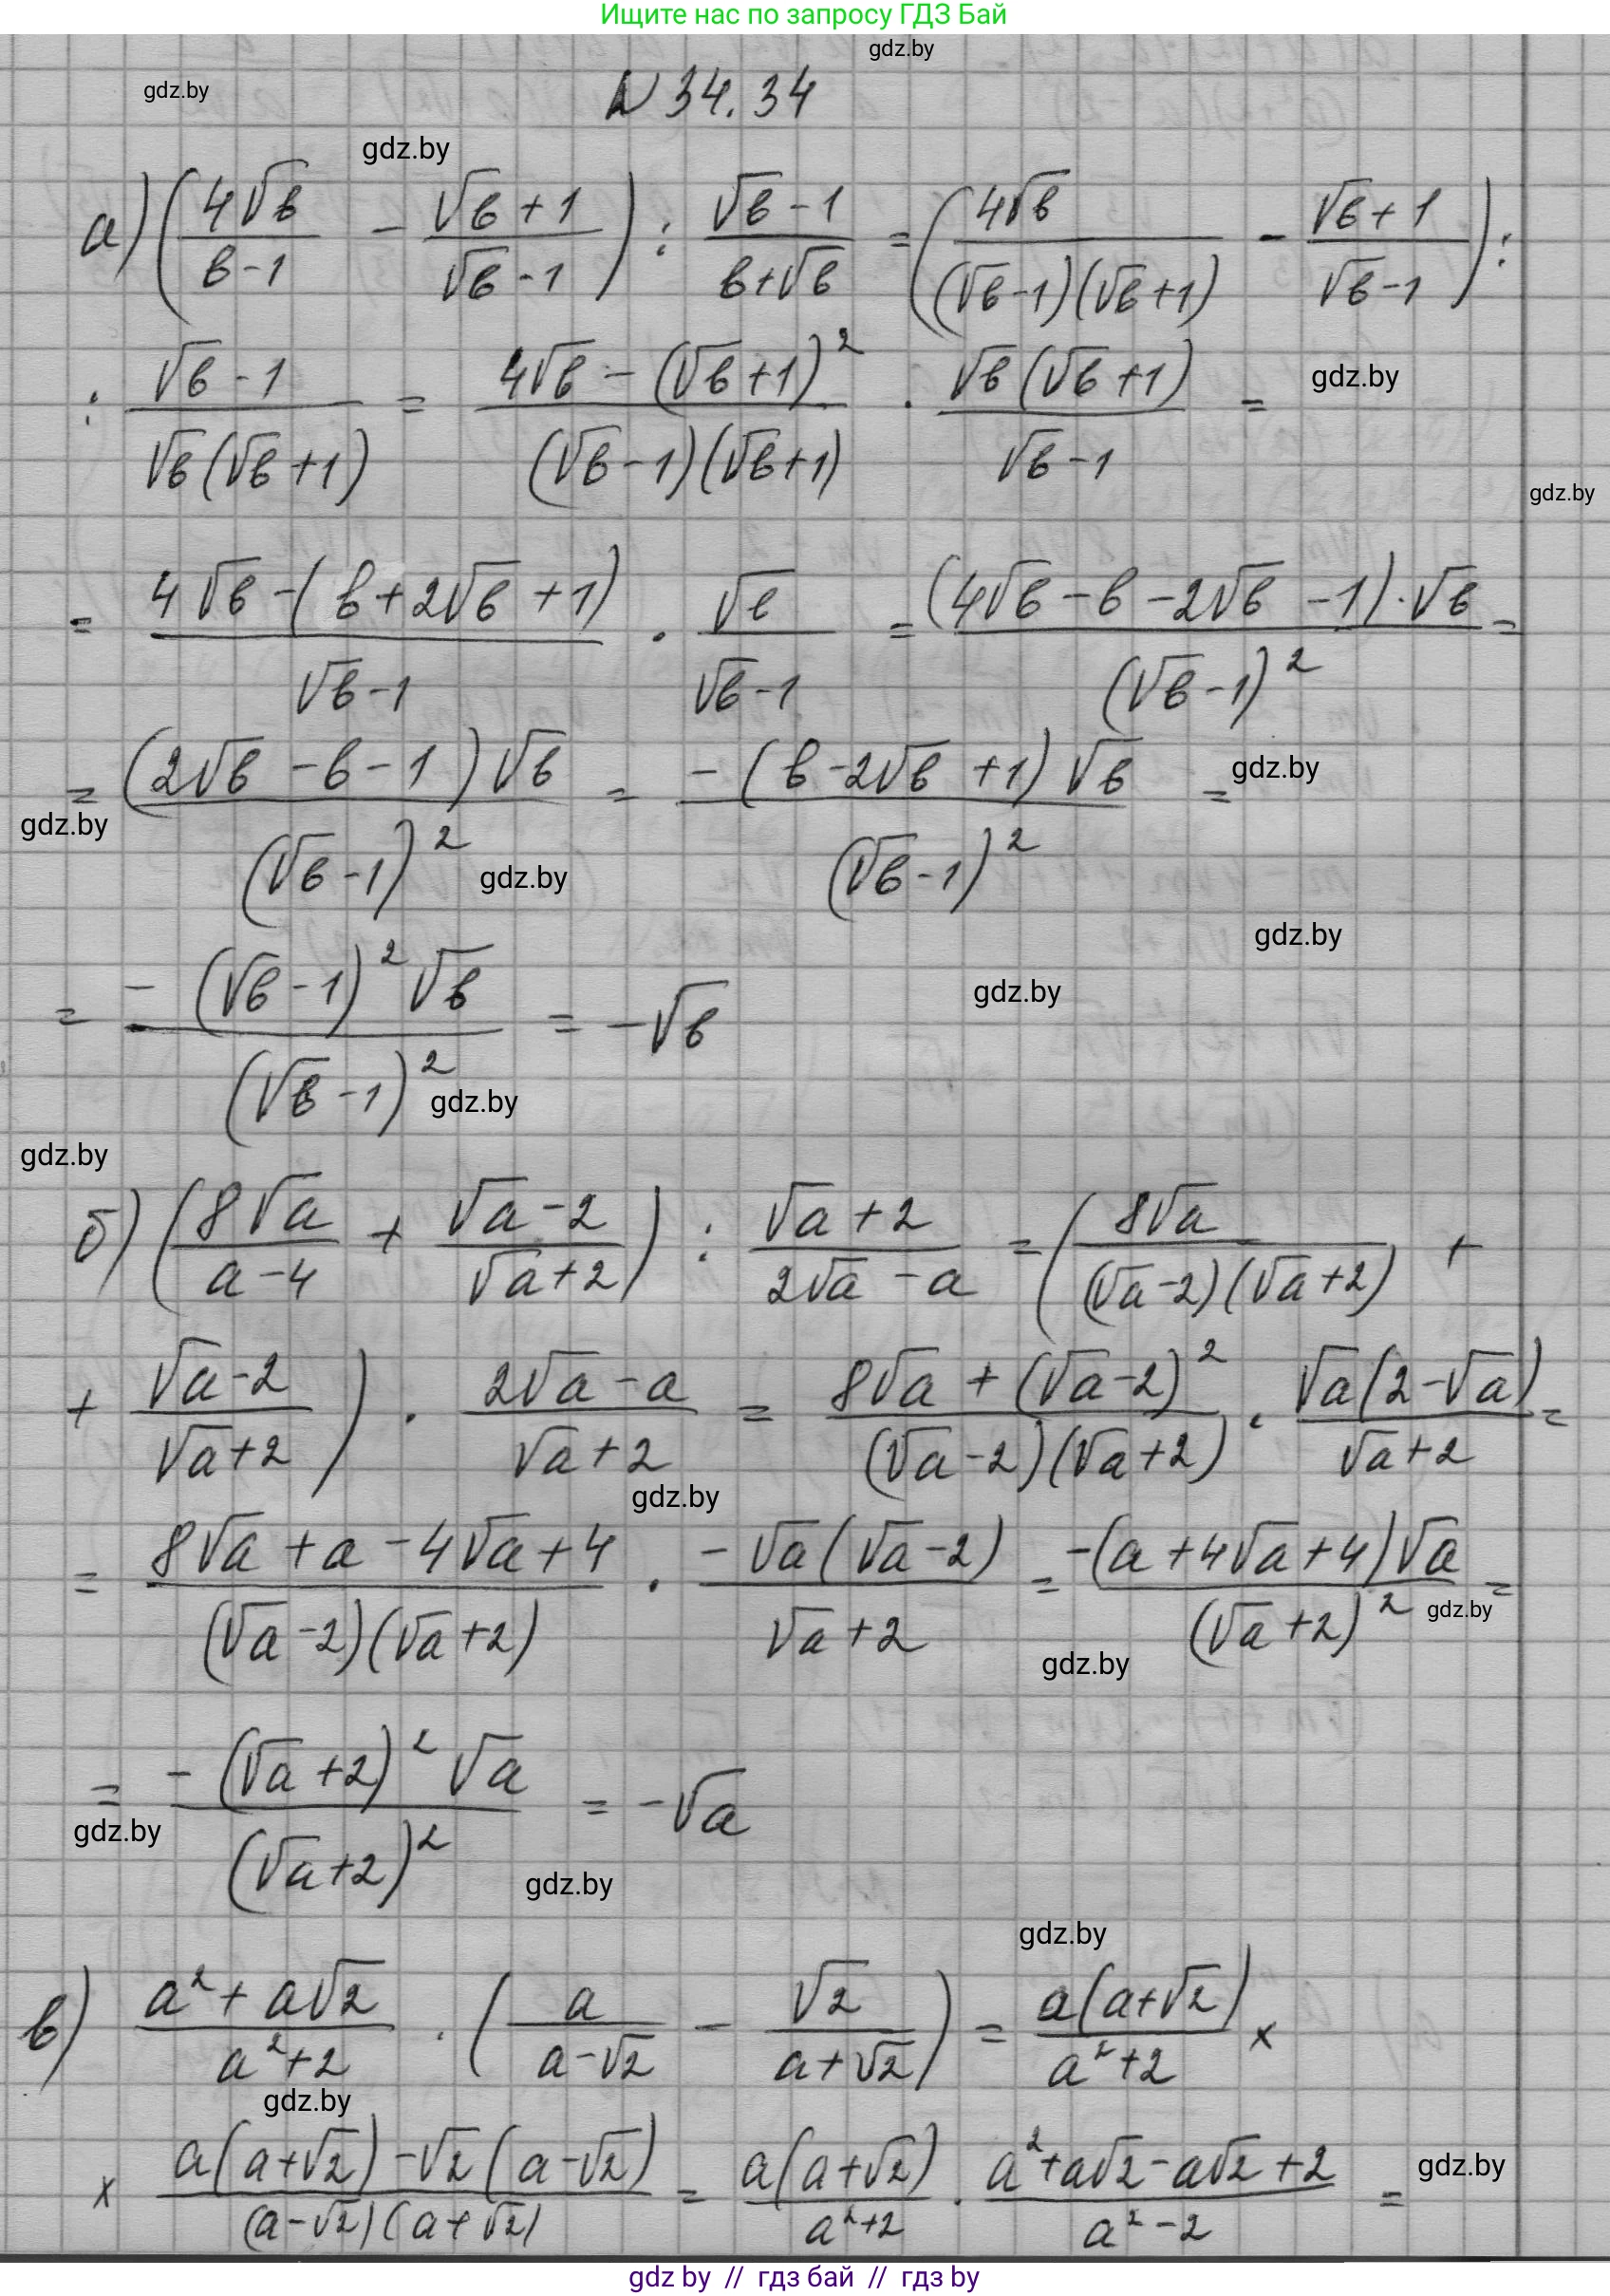 Ищите нас по запросу ГДЗ Бай
gdz.by
gdz.by
N 34.34
gdz.by
а) (4√в/(в-1) - (√в+1)/(√в-1)) : (√в-1)/(в+√в) = (4√в/((√в-1)(√в+1)) - (√в+1)/(√в-1)) :
: (√в-1)/(√в(√в+1)) = (4√в-(√в+1)²)/((√в-1)(√в+1)) · (√в(√в+1))/(√в-1) =
gdz.by
gdz.by
= (4√в-(в+2√в+1))/(√в-1) · √в/(√в-1) = ((4√в-в-2√в-1)·√в)/(√в-1)² =
= ((2√в-в-1)√в)/(√в-1)² = (-(в-2√в+1)√в)/(√в-1)² =
gdz.by
gdz.by
gdz.by
gdz.by
gdz.by
= (-(√в-1)²√в)/(√в-1)² = -√в
gdz.by
gdz.by
б) (8√a/(a-4) + (√a-2)/(√a+2)) : (√a+2)/(2√a-a) = (8√a/((√a-2)(√a+2)) +
+ (√a-2)/(√a+2)) · (2√a-a)/(√a+2) = (8√a+(√a-2)²)/((√a-2)(√a+2)) · (√a(2-√a))/(√a+2) =
gdz.by
= (8√a+a-4√a+4)/((√a-2)(√a+2)) · (-√a(√a-2))/(√a+2) = (-(a+4√a+4)√a)/(√a+2)² =
gdz.by
gdz.by
= (-(√a+2)²√a)/(√a+2)² = -√a
gdz.by
gdz.by
gdz.by
в) (a²+a√2)/(a²+2) · (a/(a-√2) - √2/(a+√2)) = (a(a+√2))/(a²+2) ×
gdz.by
× (a(a+√2)-√2(a-√2))/((a-√2)(a+√2)) = (a(a+√2))/(a²+2) · (a²+a√2-a√2+2)/(a²-2) =
gdz.by
gdz by // гдз бай // гдз by